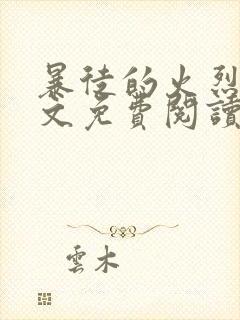 暴徒的火烈
文免費閱讀
雲木